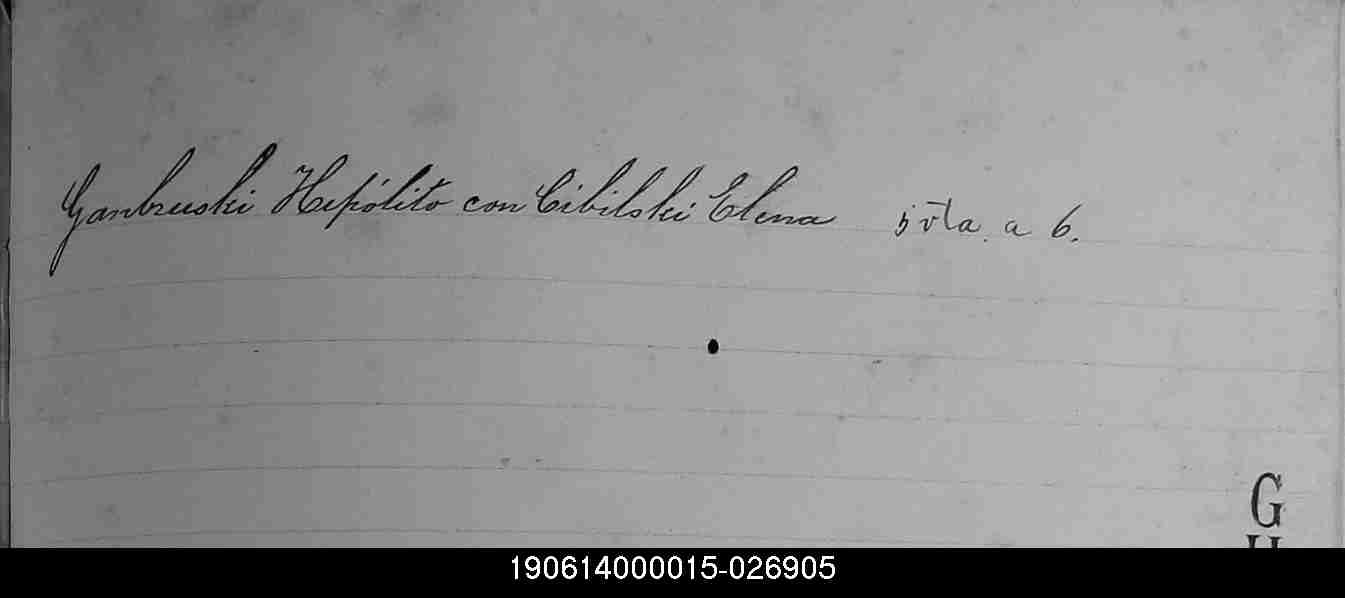 Ganbruski Hipólito con Cibilski Elena 5 vta. a 6.
G
H
190614000015-026905